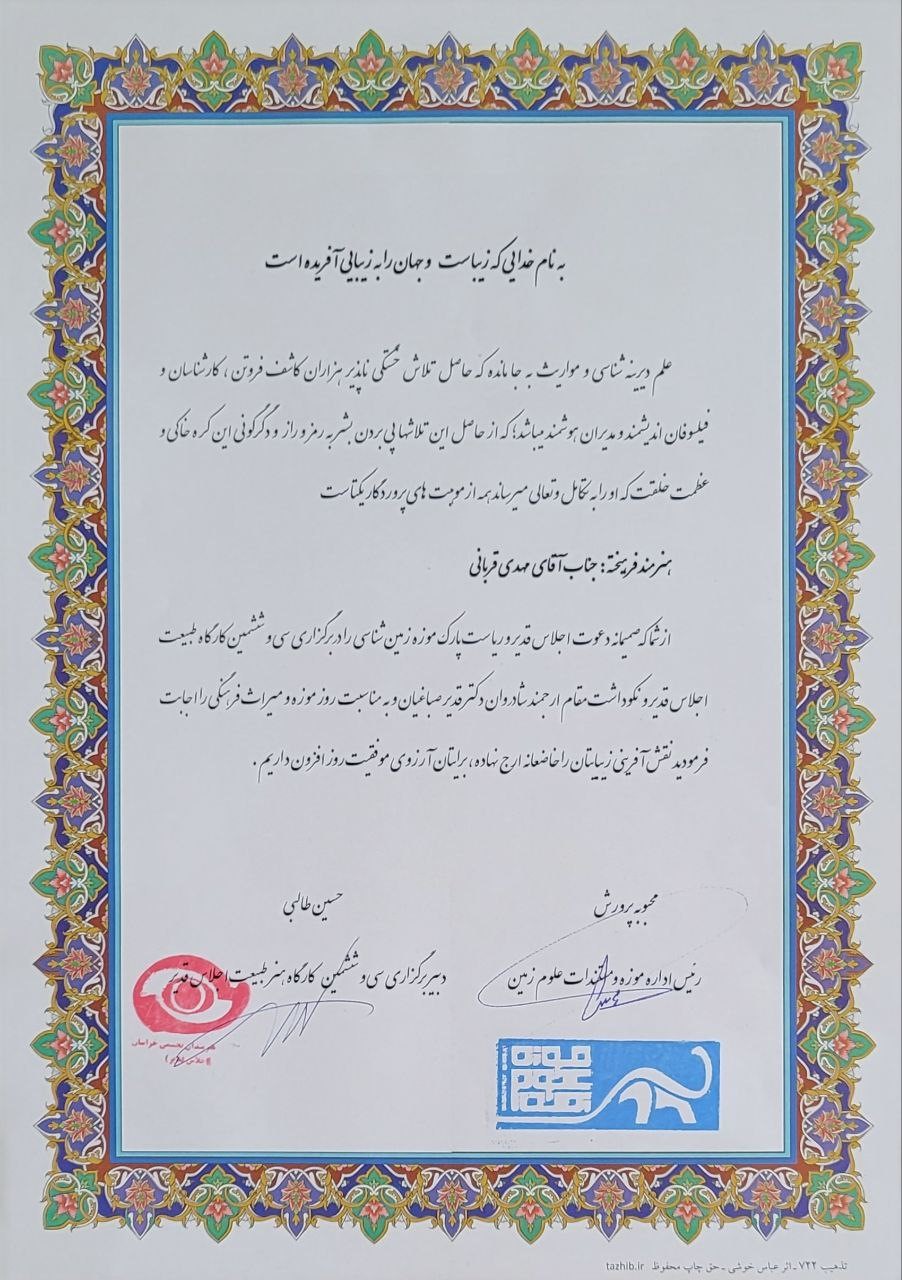 به نام خدایی که زیباست و جهان را به زیبایی آفریده است
علم دیرینه شناسی و مواریث به جا مانده که حاصل تلاش خستگی ناپذیر هزاران کاشف فروتن ، کارشناسان و
فیلسوفان اندیشمند و مدیران هوشمند میباشد؛ که از حاصل این تلاشها پی بردن بشر به رمز و راز و دگرگونی این کره خاکی و
عظمت خلقت که او را به تکامل و تعالی میرساند همه از موهبت های پروردگار یکتاست
هنرمند فریخته : جناب آقای مهدی قربانی
از شما که صمیمانه دعوت اجلاس قدیر و ریاست پارک موزه زمین شناسی را در برگزاری سی و ششمین کارگاه طبیعت
اجلاس قدیر و نکوداشت مقام ارجمند شادروان دکتر قدیر صباغیان و به مناسبت روز موزه و میراث فرهنگی را اجابت
فرمودید نقش آفرینی زیبایتان را خاضعانه ارج نهاده ، برایتان آرزوی موفقیت روز افزون داریم .
محبوبه پرورش
حسین طالبی
رئیس اداره موزه و مستندات علوم زمین
دبیر برگزاری سی و ششمین کارگاه هنر طبیعت اجلاس قدیر
هنرمندان تجسمی خراسان
موزه
علوم
زمین
تذهیب ۷۲۲ ـ اثر عباس خوشی ـ حق چاپ محفوظ tazhib.ir